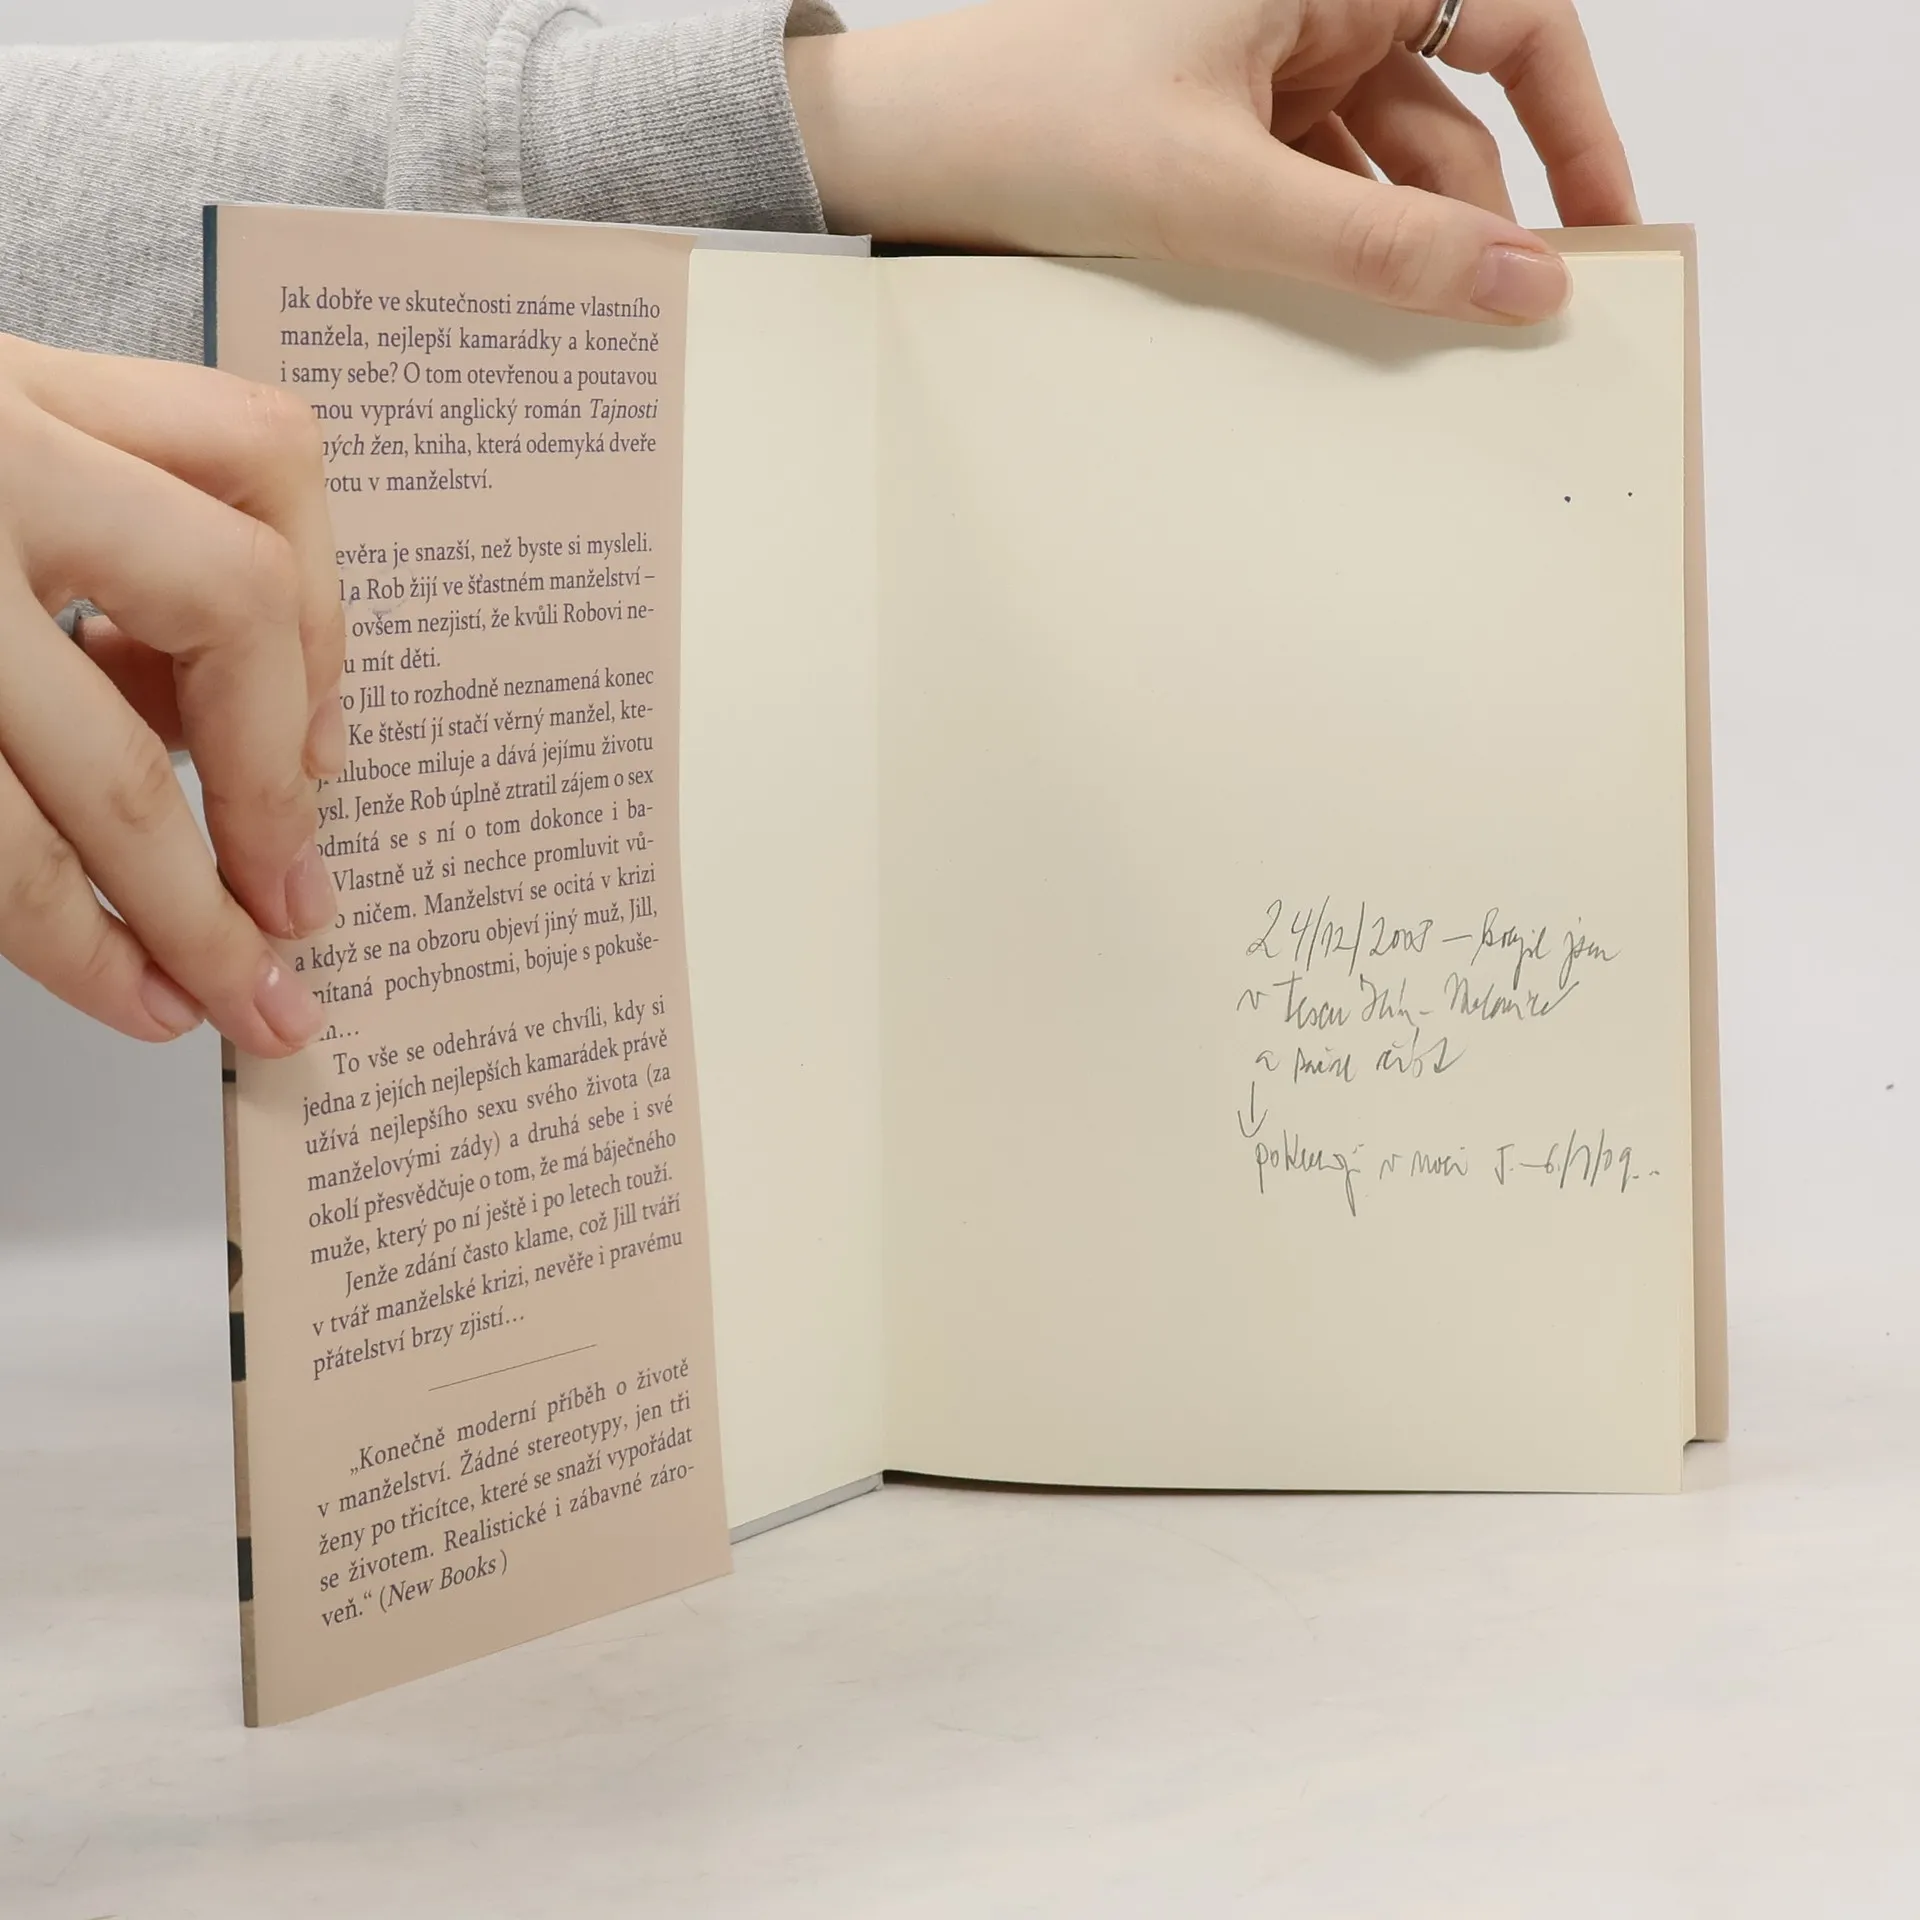 Jak dobře ve skutečnosti známe vlastního
manžela, nejlepší kamarádky a konečně
i samy sebe? O tom otevřenou a poutavou
mou vypráví anglický román Tajnosti
ných žen, kniha, která odemyká dveře
votu v manželství.
evěra je snazší, než byste si mysleli.
l a Rob žijí ve šťastném manželství –
ovšem nezjistí, že kvůli Robovi ne-
u mít děti.
ro Jill to rozhodně neznamená konec
Ke štěstí jí stačí věrný manžel, kte-
hluboce miluje a dává jejímu životu
ysl. Jenže Rob úplně ztratil zájem o sex
odmítá se s ní o tom dokonce i ba-
Vlastně už si nechce promluvit vů-
o ničem. Manželství se ocitá v krizi
a když se na obzoru objeví jiný muž, Jill,
mítaná pochybnostmi, bojuje s pokuše-
m…
To vše se odehrává ve chvíli, kdy si
jedna z jejích nejlepších kamarádek právě
užívá nejlepšího sexu svého života (za
manželovými zády) a druhá sebe i své
okolí přesvědčuje o tom, že má báječného
muže, který po ní ještě i po letech touží.
Jenže zdání často klame, což Jill tváří
v tvář manželské krizi, nevěře i pravému
přátelství brzy zjistí…
„Konečně moderní příběh o životě
v manželství. Žádné stereotypy, jen tři
ženy po třicítce, které se snaží vypořádat
se životem. Realistické i zábavné záro-
veň.“ (New Books)
24/12/2008 – jsem
v Tescu
a
v noci 5.–6/1/09..